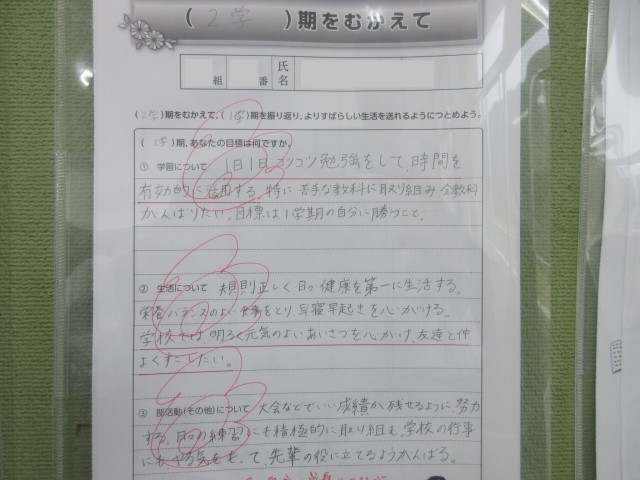 ( 2学 )期をむかえて
組 番 氏名
( 2学 )期をむかえて、( 1学 )期を振り返り、よりすばらしい生活を送れるようにつとめよう。
( 2学 )期、あなたの目標は何ですか。
① 学習について 1日1日コツコツ勉強をして、時間を
有効的に活用する。特に苦手な教科に取り組み全教科
がんばりたい。目標は1学期の自分に勝つこと。
② 生活について 規則正しく日々健康を第一に生活する。
栄養バランスのよい食事をとり、早寝早起きを心がける。
学校では明るく元気のよいあいさつを心がけ、友達と仲
よくすごしたい。
③ 部活動(その他)について 大会などでいい成績が残せるように努力
する。日々の練習にも積極的に取り組む。学校の行事
にもやる気をもって、先輩の役に立てるようがんばる。